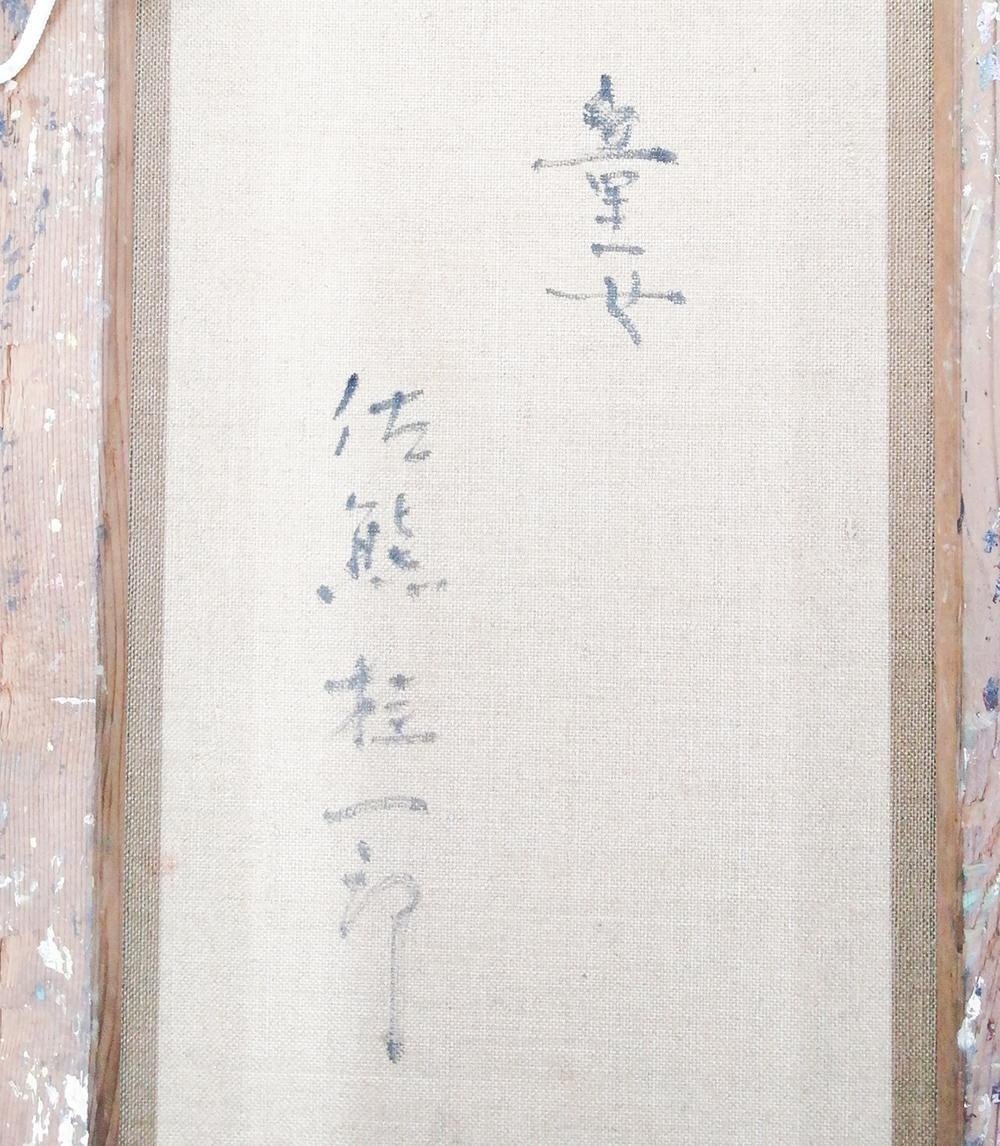 童女
佐熊桂一郎